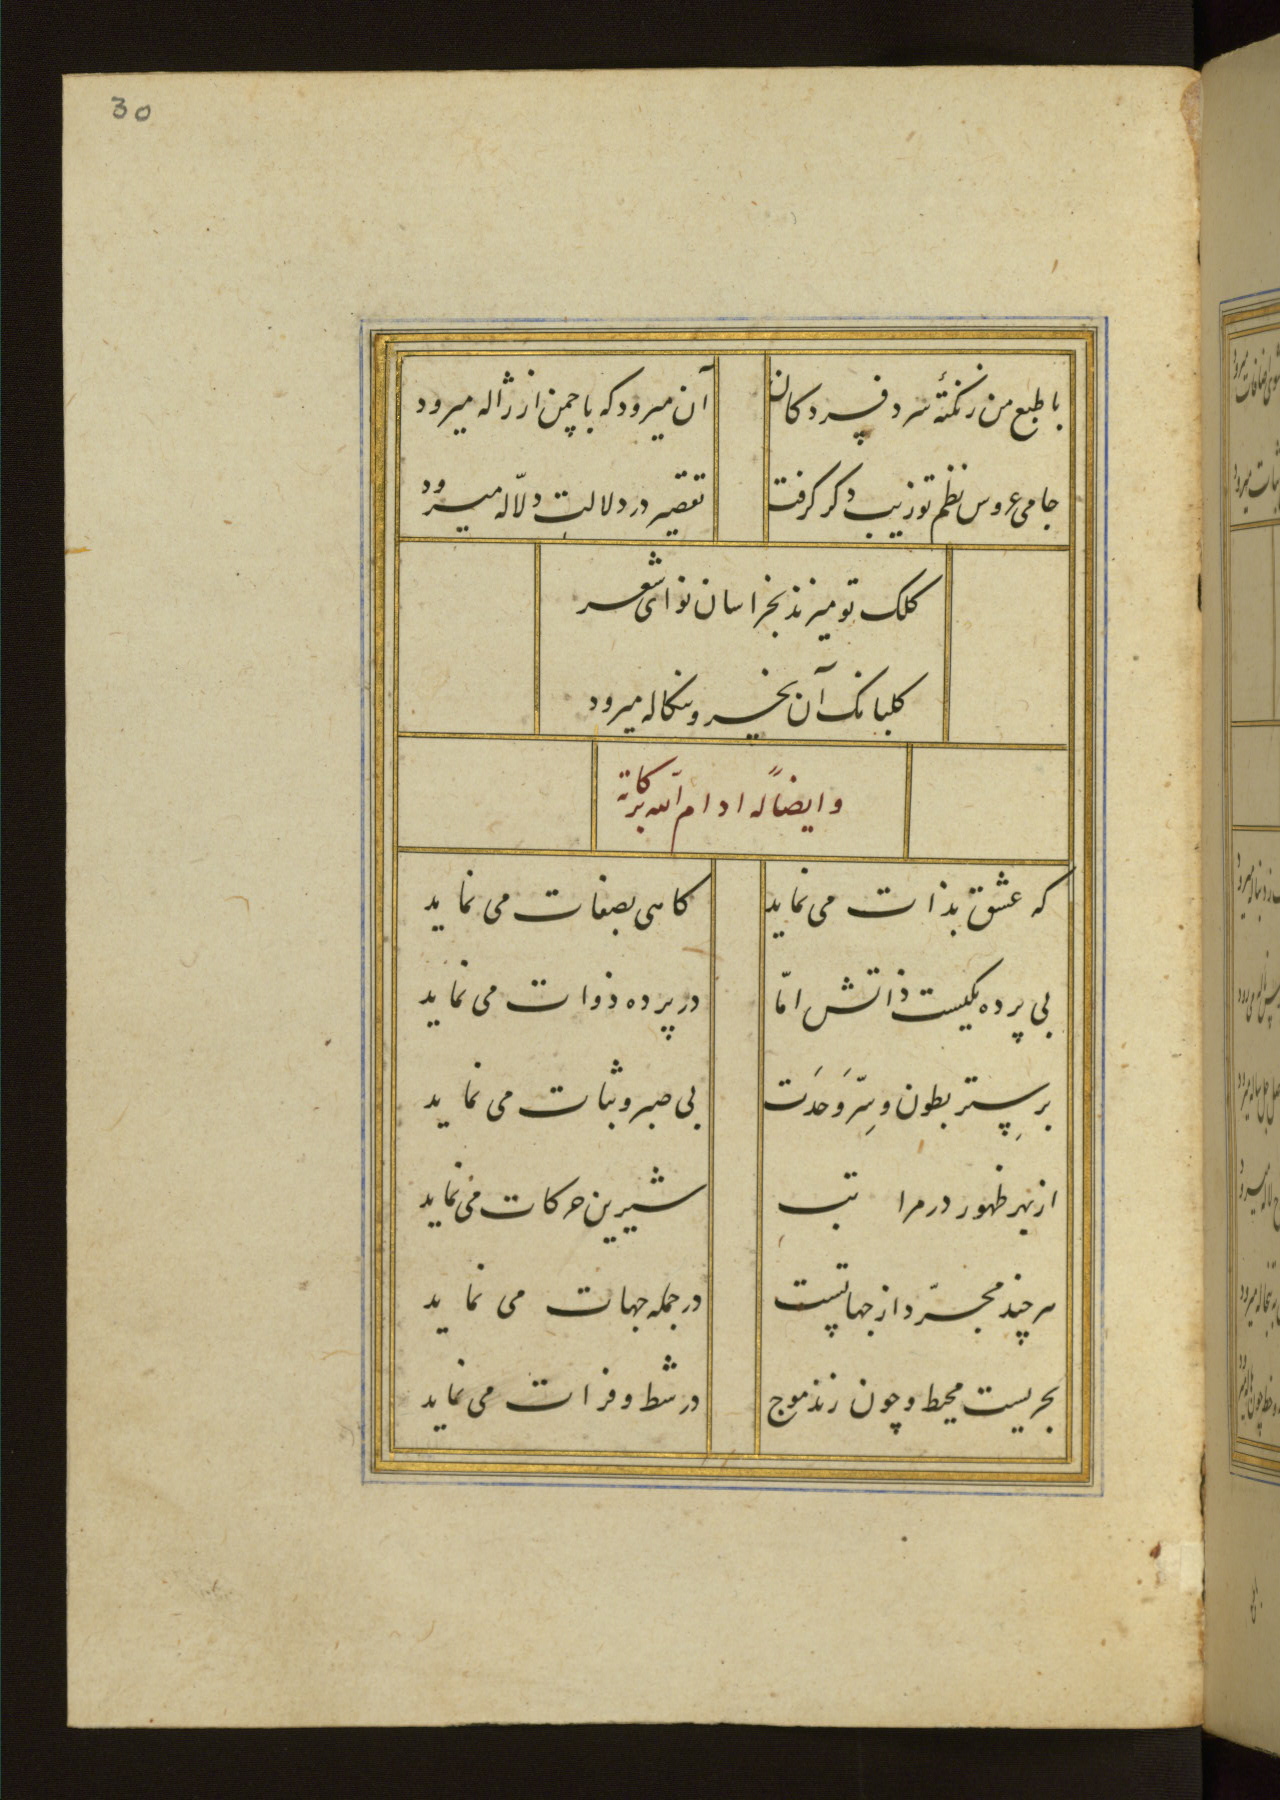 30
با طبع من ز نکتهٔ سرد فسردکان آن میرود که با چمن از ژاله میرود
جامی عروس نظم تو زیب دکر کرفت تقصیر در دلالت دلّاله میرود
کلک تو میزند بخراسان نوای شعر
کلبانک آن بخسرو بنکاله میرود
وایضاً له ادام الله برکاته
که عشق بذات می نماید کاهی بصفات می نماید
بی پرده یکیست ذاتش امّا در پرده ذوات می نماید
بر سِتر بطون و سِرّ وَحدَت بی صبر و ثبات می نماید
از بهر ظهور در مراتب شیرین حرکات می نماید
هر چند مجرّد از جهاتست در جمله جهات می نماید
بحریست محیط و چون زند موج در شط و فرات می نماید